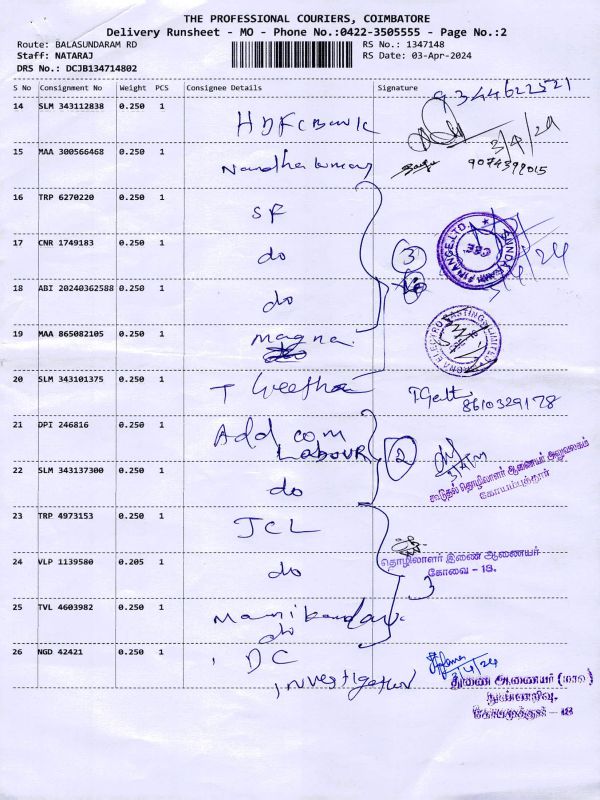 THE PROFESSIONAL COURIERS, COIMBATORE
Delivery Runsheet - MO - Phone No.:0422-3505555 - Page No.:2
Route: BALASUNDARAM RD
Staff: NATARAJ
DRS No.: DCJB134714802
RS No.: 1347148
RS Date: 03-Apr-2024
S No Consignment No Weight PCS Consignee Details Signature
9344622521
14 SLM 343112838 0.250 1 HDFC Bank
3/4/24
15 MAA 300566468 0.250 1 Nandhakumar
16 TRP 6270220 0.250 1 SF
17 CNR 1749183 0.250 1 do 3
18 ABI 20240362588 0.250 1 do
19 MAA 865082105 0.250 1 magna
20 SLM 343101375 0.250 1 T Geetha
8610329178
21 DPI 246816 0.250 1 Add com
Labour 2
22 SLM 343137300 0.250 1 do
கூடுதல் தொழிலாளர் ஆணையர் அலுவலகம்
கோயம்புத்தூர்
23 TRP 4973153 0.250 1 JCL
24 VLP 1139580 0.205 1 do
தொழிலாளர் இணை ஆணையர்
கோவை - 18.
3
25 TVL 4603982 0.250 1 Manikandan
do
26 NGD 42421 0.250 1 DC
Investigation
3/4/24
துணை ஆணையர் (மாவ)
நுண்ணறிவு,